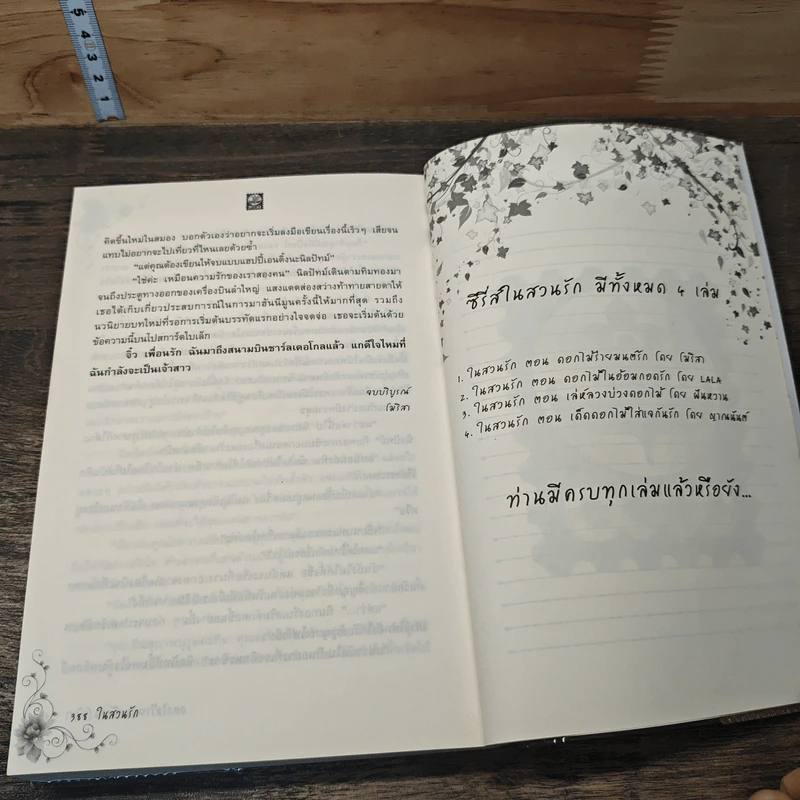 5
4
3
2
1
คิดขึ้นใหม่ในสมอง บอกตัวเองว่าอยากจะเริ่มลงมือเขียนเรื่องนี้เร็วๆ เสียจน
แทบไม่อยากจะไปเที่ยวที่ไหนเลยด้วยซ้ำ
“แต่คุณต้องเขียนให้จบแบบแฮปปี้เอนดิ้งนะนิลปัทม์”
“ใช่ค่ะ เหมือนความรักของเราสองคน” นิลปัทม์เดินตามทิมทองมา
จนถึงประตูทางออกของเครื่องบินลำใหญ่ แสงแดดส่องสว่างท้าทายสายตาให้
เธอได้เก็บเกี่ยวประสบการณ์ในการมาฮันนีมูนครั้งนี้ให้มากที่สุด รวมถึง
นวนิยายบทใหม่ที่รอการเริ่มต้นบรรทัดแรกอย่างใจจดจ่อ เธอจะเริ่มต้นด้วย
ข้อความนี้บนโปสการ์ดใบเล็ก
จิ๋ว เพื่อนรัก ฉันมาถึงสนามบินชาร์ลเดอโกลแล้ว แกดีใจไหมที่
ฉันกำลังจะเป็นเจ้าสาว
จบบริบูรณ์
โมริสา
388 ในสวนรัก
ซีรีส์ในสวนรัก มีทั้งหมด 4 เล่ม
1. ในสวนรัก ตอน ดอกไม้ร่ายมนตรัก โดย โมริสา
2. ในสวนรัก ตอน ดอกไม้ในอ้อมกอดรัก โดย LALA
3. ในสวนรัก ตอน เล่ห์ลวงบ่วงดอกไม้ โดย ฝันหวาน
4. ในสวนรัก ตอน เด็ดดอกไม้ใส่แจกันรัก โดย ญาณนันต์
ท่านมีครบทุกเล่มแล้วหรือยัง...